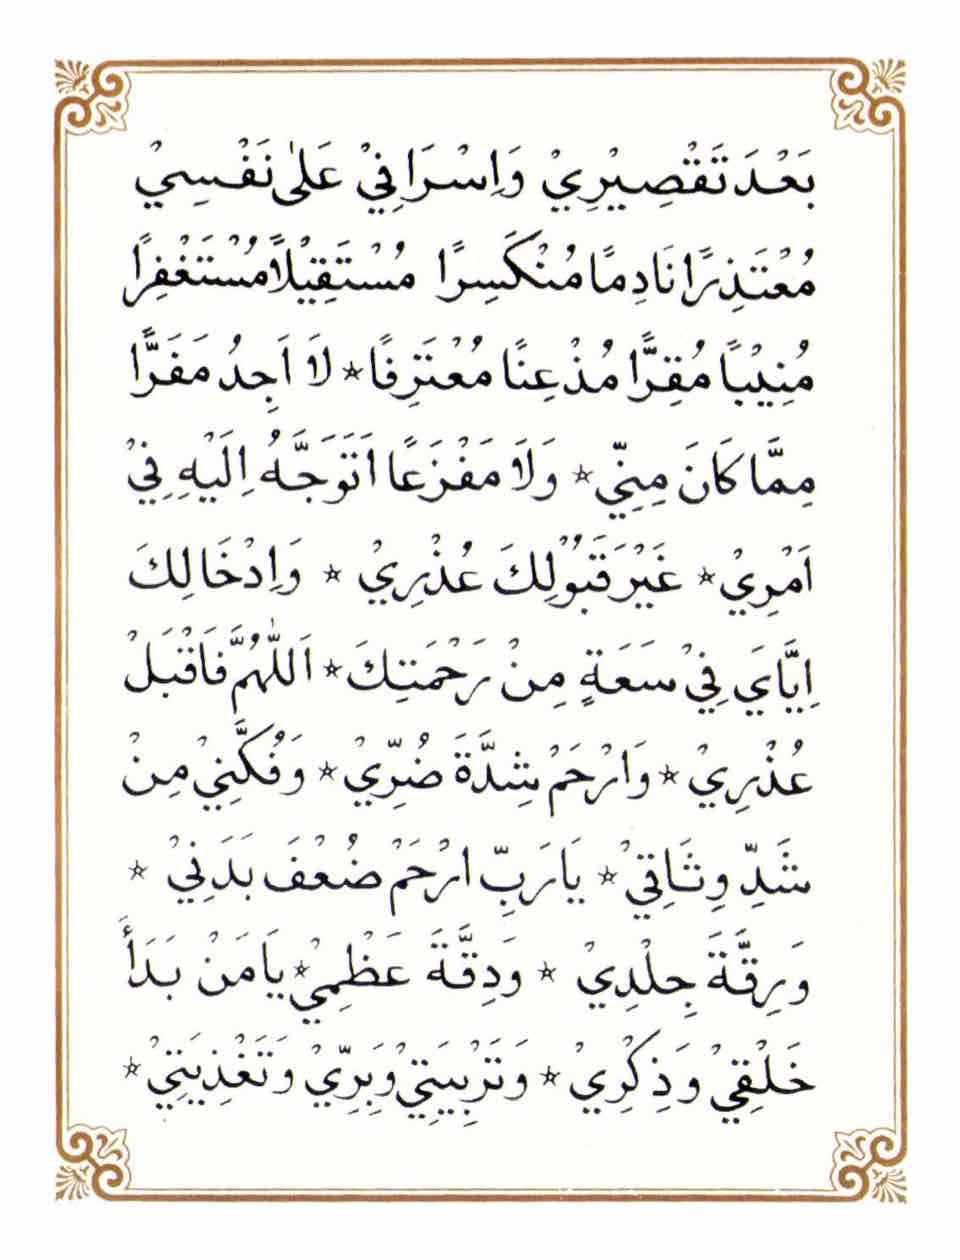 بَعْدَ تَقْصِيْرِيْ وَاِسْرَافِيْ عَلٰى نَفْسِيْ
مُعْتَذِرًا نَادِمًا مُنْكَسِرًا مُسْتَقِيْلًا مُسْتَغْفِرًا
مُنِيْبًا مُقِرًّا مُذْعِنًا مُعْتَرِفًا ☆ لَا اَجِدُ مَفَرًّا
مِمَّا كَانَ مِنِّيْ ☆ وَلَا مَفْزَعًا اَتَوَجَّهُ اِلَيْهِ فِيْ
اَمْرِيْ ☆ غَيْرَ قَبُوْلِكَ عُذْرِيْ ☆ وَاِدْخَالِكَ
اِيَّايَ فِيْ سَعَةٍ مِنْ رَحْمَتِكَ ☆ اَللّٰهُمَّ فَاقْبَلْ
عُذْرِيْ ☆ وَارْحَمْ شِدَّةَ ضُرِّيْ ☆ وَفُكَّنِيْ مِنْ
شَدِّ وِثَاقِيْ ☆ يَارَبِّ ارْحَمْ ضُعْفَ بَدَنِيْ ☆
وَرِقَّةَ جِلْدِيْ ☆ وَدِقَّةَ عَظْمِيْ ☆ يَامَنْ بَدَأَ
خَلْقِيْ وَذِكْرِيْ ☆ وَتَرْبِيَتِيْ وَبِرِّيْ وَتَغْذِيَتِيْ ☆